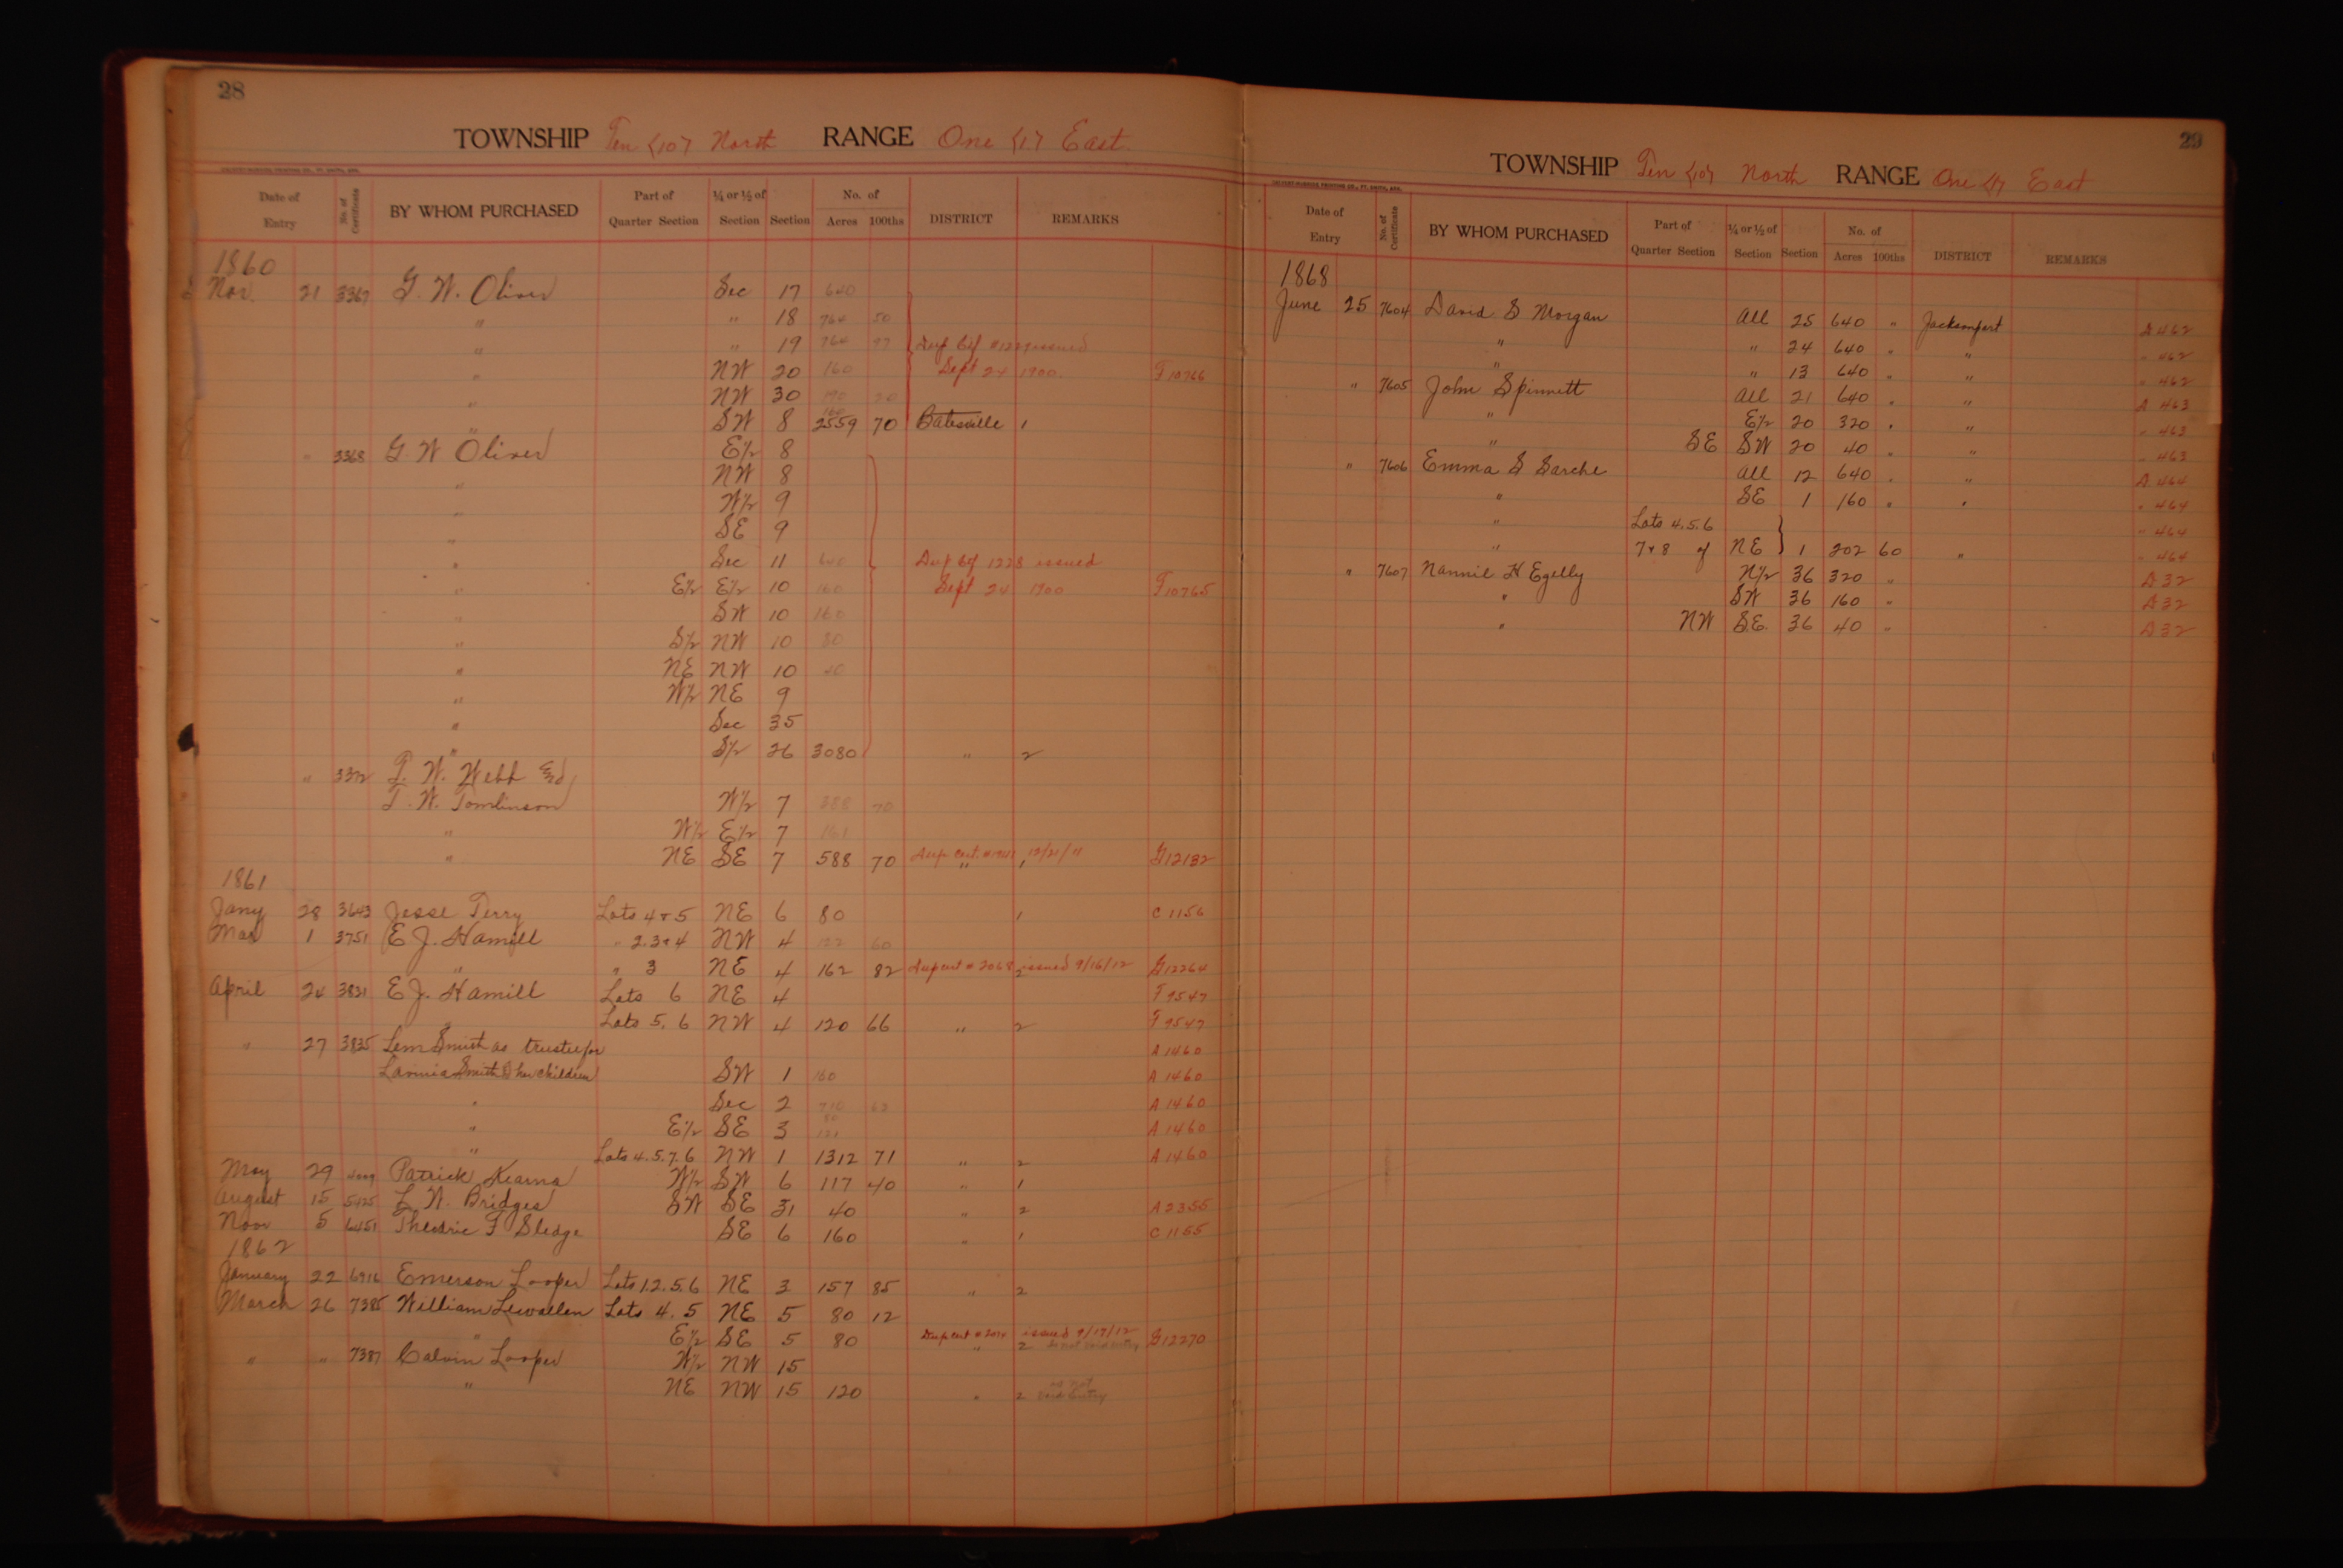 28
TOWNSHIP Ten (10) North RANGE One (1) East.
Date of Entry No. of Certificate BY WHOM PURCHASED Part of Quarter Section ¼ or ½ of Section Section No. of Acres 100ths DISTRICT REMARKS
1860
Nov. 21 3367 G. W. Oliver Sec 17 640
" " 18 764 50
" " 19 764 Dup Ctf #1229 issued
" NW 20 160 Sept 24 1900. F10766
" NW 30 20
" SW 8 160 2559 70 Batesville 1
" 3368 G W Oliver E½ 8
" NW 8
" W½ 9
" SE 9
" Sec 11 640 Dup Ctf 1228 issued
" E½ E½ 10 160 Sept 24 1900 F10765
" SW 10 160
" S½ NW 10 80
" NE NW 10 40
" W½ NE 9
" Sec 35
" S½ 26 3080 " 2
" 3372 T. W. Webb and
T. W. Tomlinson W½ 7 388 70
" W½ E½ 7 161
" NE SE 7 588 70 Dup Cert. 12/21/11 " 1 G12132
1861
Jany 28 3643 Jesse Terry Lots 4+5 NE 6 80 1 C 1156
Mar 1 3751 E J. Hamill " 2.3+4 NW 4 122 60
" " 3 NE 4 162 82 Dup cert # 2068 2 issued 9/16/12 G12264
April 24 3831 E J. Hamill Lots 6 NE 4 F 9547
" Lots 5. 6 NW 4 120 66 " 2 F 9547
" 27 3835 Lem Smith as trustee for A 1460
Lannia Smith & her children SW 1 160 A 1460
" Sec 2 710 A 1460
" E½ SE 3 80 A 1460
" Lots 4.5.7.6 NW 1 1312 71 " 2 A 1460
May 29 Patrick Kearns W½ SW 6 117 40 " 1
August 15 5425 L W. Bridges SW SE 31 40 " 2 A 2355
Novr 5 6451 Theodric F Sledge SE 6 160 " 1 C 1155
1862
January 22 6916 Emerson Looper Lots 1.2.5.6 NE 3 157 85 " 2
March 26 7385 William Lewallen Lots 4. 5 NE 5 80 12
" E½ SE 5 80 Dup Cert # 2074 issued 9/17/12 " 2 G12270
" " 7387 Calvin Looper W½ NW 15
" NE NW 15 120 " 2 is not void Entry
29
TOWNSHIP Ten (10) North RANGE One (1) East
Date of Entry No. of Certificate BY WHOM PURCHASED Part of Quarter Section ¼ or ½ of Section Section No. of Acres 100ths DISTRICT REMARKS
1868
June 25 7604 David S Morgan All 25 640 " Jacksonport A 462
" " 24 640 " " " 462
" " 13 640 " " " 462
" 7605 John Spinnett All 21 640 " " A 463
" E½ 20 320 " " " 463
" SE SW 20 40 " " " 463
" 7606 Emma S Sarche All 12 640 " " A 464
" SE 1 160 " " " 464
" Lots 4.5.6 " 464
" 7+8 of NE 1 202 60 " " 464
" 7607 Nannie H Egelly N½ 36 320 " A 32
" SW 36 160 " A 32
" NW S.E. 36 40 " A 32